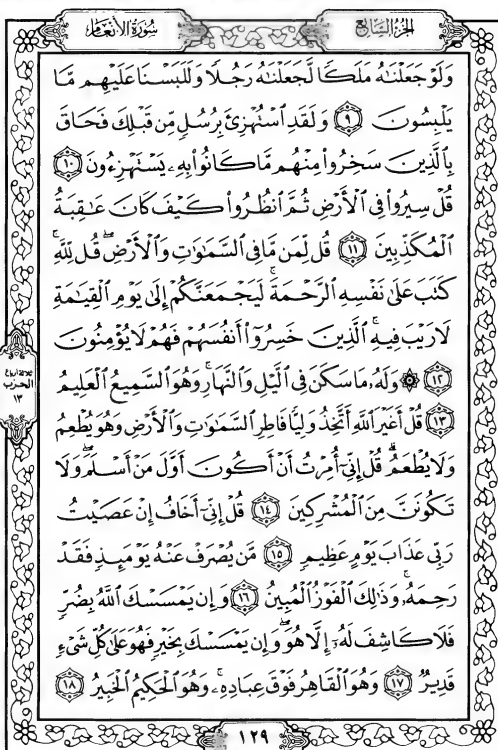 الجزء السابع
سورة الأنعام
وَلَوْ جَعَلْنَٰهُ مَلَكًا لَّجَعَلْنَٰهُ رَجُلًا وَلَلَبَسْنَا عَلَيْهِم مَّا
يَلْبِسُونَ ٩ وَلَقَدِ ٱسْتُهْزِئَ بِرُسُلٍ مِّن قَبْلِكَ فَحَاقَ
بِٱلَّذِينَ سَخِرُوا۟ مِنْهُم مَّا كَانُوا۟ بِهِۦ يَسْتَهْزِءُونَ ١٠
قُلْ سِيرُوا۟ فِى ٱلْأَرْضِ ثُمَّ ٱنظُرُوا۟ كَيْفَ كَانَ عَٰقِبَةُ
ٱلْمُكَذِّبِينَ ١١ قُل لِّمَن مَّا فِى ٱلسَّمَٰوَٰتِ وَٱلْأَرْضِ ۖ قُل لِّلَّهِ ۚ
كَتَبَ عَلَىٰ نَفْسِهِ ٱلرَّحْمَةَ ۚ لَيَجْمَعَنَّكُمْ إِلَىٰ يَوْمِ ٱلْقِيَٰمَةِ
لَا رَيْبَ فِيهِ ۚ ٱلَّذِينَ خَسِرُوٓا۟ أَنفُسَهُمْ فَهُمْ لَا يُؤْمِنُونَ
١٢ ۞ وَلَهُۥ مَا سَكَنَ فِى ٱلَّيْلِ وَٱلنَّهَارِ ۚ وَهُوَ ٱلسَّمِيعُ ٱلْعَلِيمُ
١٣ قُلْ أَغَيْرَ ٱللَّهِ أَتَّخِذُ وَلِيًّا فَاطِرِ ٱلسَّمَٰوَٰتِ وَٱلْأَرْضِ وَهُوَ يُطْعِمُ
وَلَا يُطْعَمُ ۗ قُلْ إِنِّىٓ أُمِرْتُ أَنْ أَكُونَ أَوَّلَ مَنْ أَسْلَمَ ۖ وَلَا
تَكُونَنَّ مِنَ ٱلْمُشْرِكِينَ ١٤ قُلْ إِنِّىٓ أَخَافُ إِنْ عَصَيْتُ
رَبِّى عَذَابَ يَوْمٍ عَظِيمٍ ١٥ مَّن يُصْرَفْ عَنْهُ يَوْمَئِذٍ فَقَدْ
رَحِمَهُۥ ۚ وَذَٰلِكَ ٱلْفَوْزُ ٱلْمُبِينُ ١٦ وَإِن يَمْسَسْكَ ٱللَّهُ بِضُرٍّ
فَلَا كَاشِفَ لَهُۥٓ إِلَّا هُوَ ۖ وَإِن يَمْسَسْكَ بِخَيْرٍ فَهُوَ عَلَىٰ كُلِّ شَىْءٍ
قَدِيرٌ ١٧ وَهُوَ ٱلْقَاهِرُ فَوْقَ عِبَادِهِۦ ۚ وَهُوَ ٱلْحَكِيمُ ٱلْخَبِيرُ ١٨
ثلاثة أرباع
الحزب
١٣
١٢٩